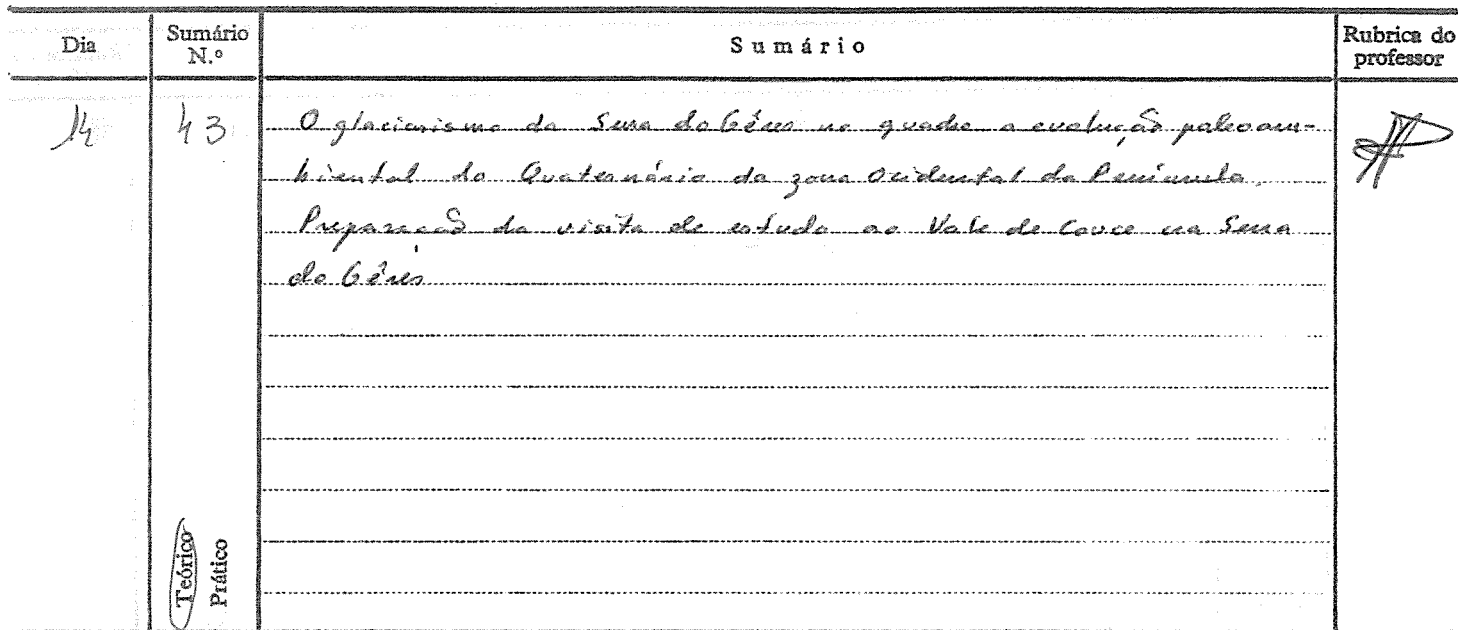 Dia
Sumário N.º
Sumário
Rubrica do professor
14
43
O glaciarismo da Serra do Gêres no quadro a evolução paleoam-
biental do Quaternário da zona Ocidental da Península.
Preparação da visita de estudo ao Vale de Couce na Serra
do Gêres
Teórico
Prático